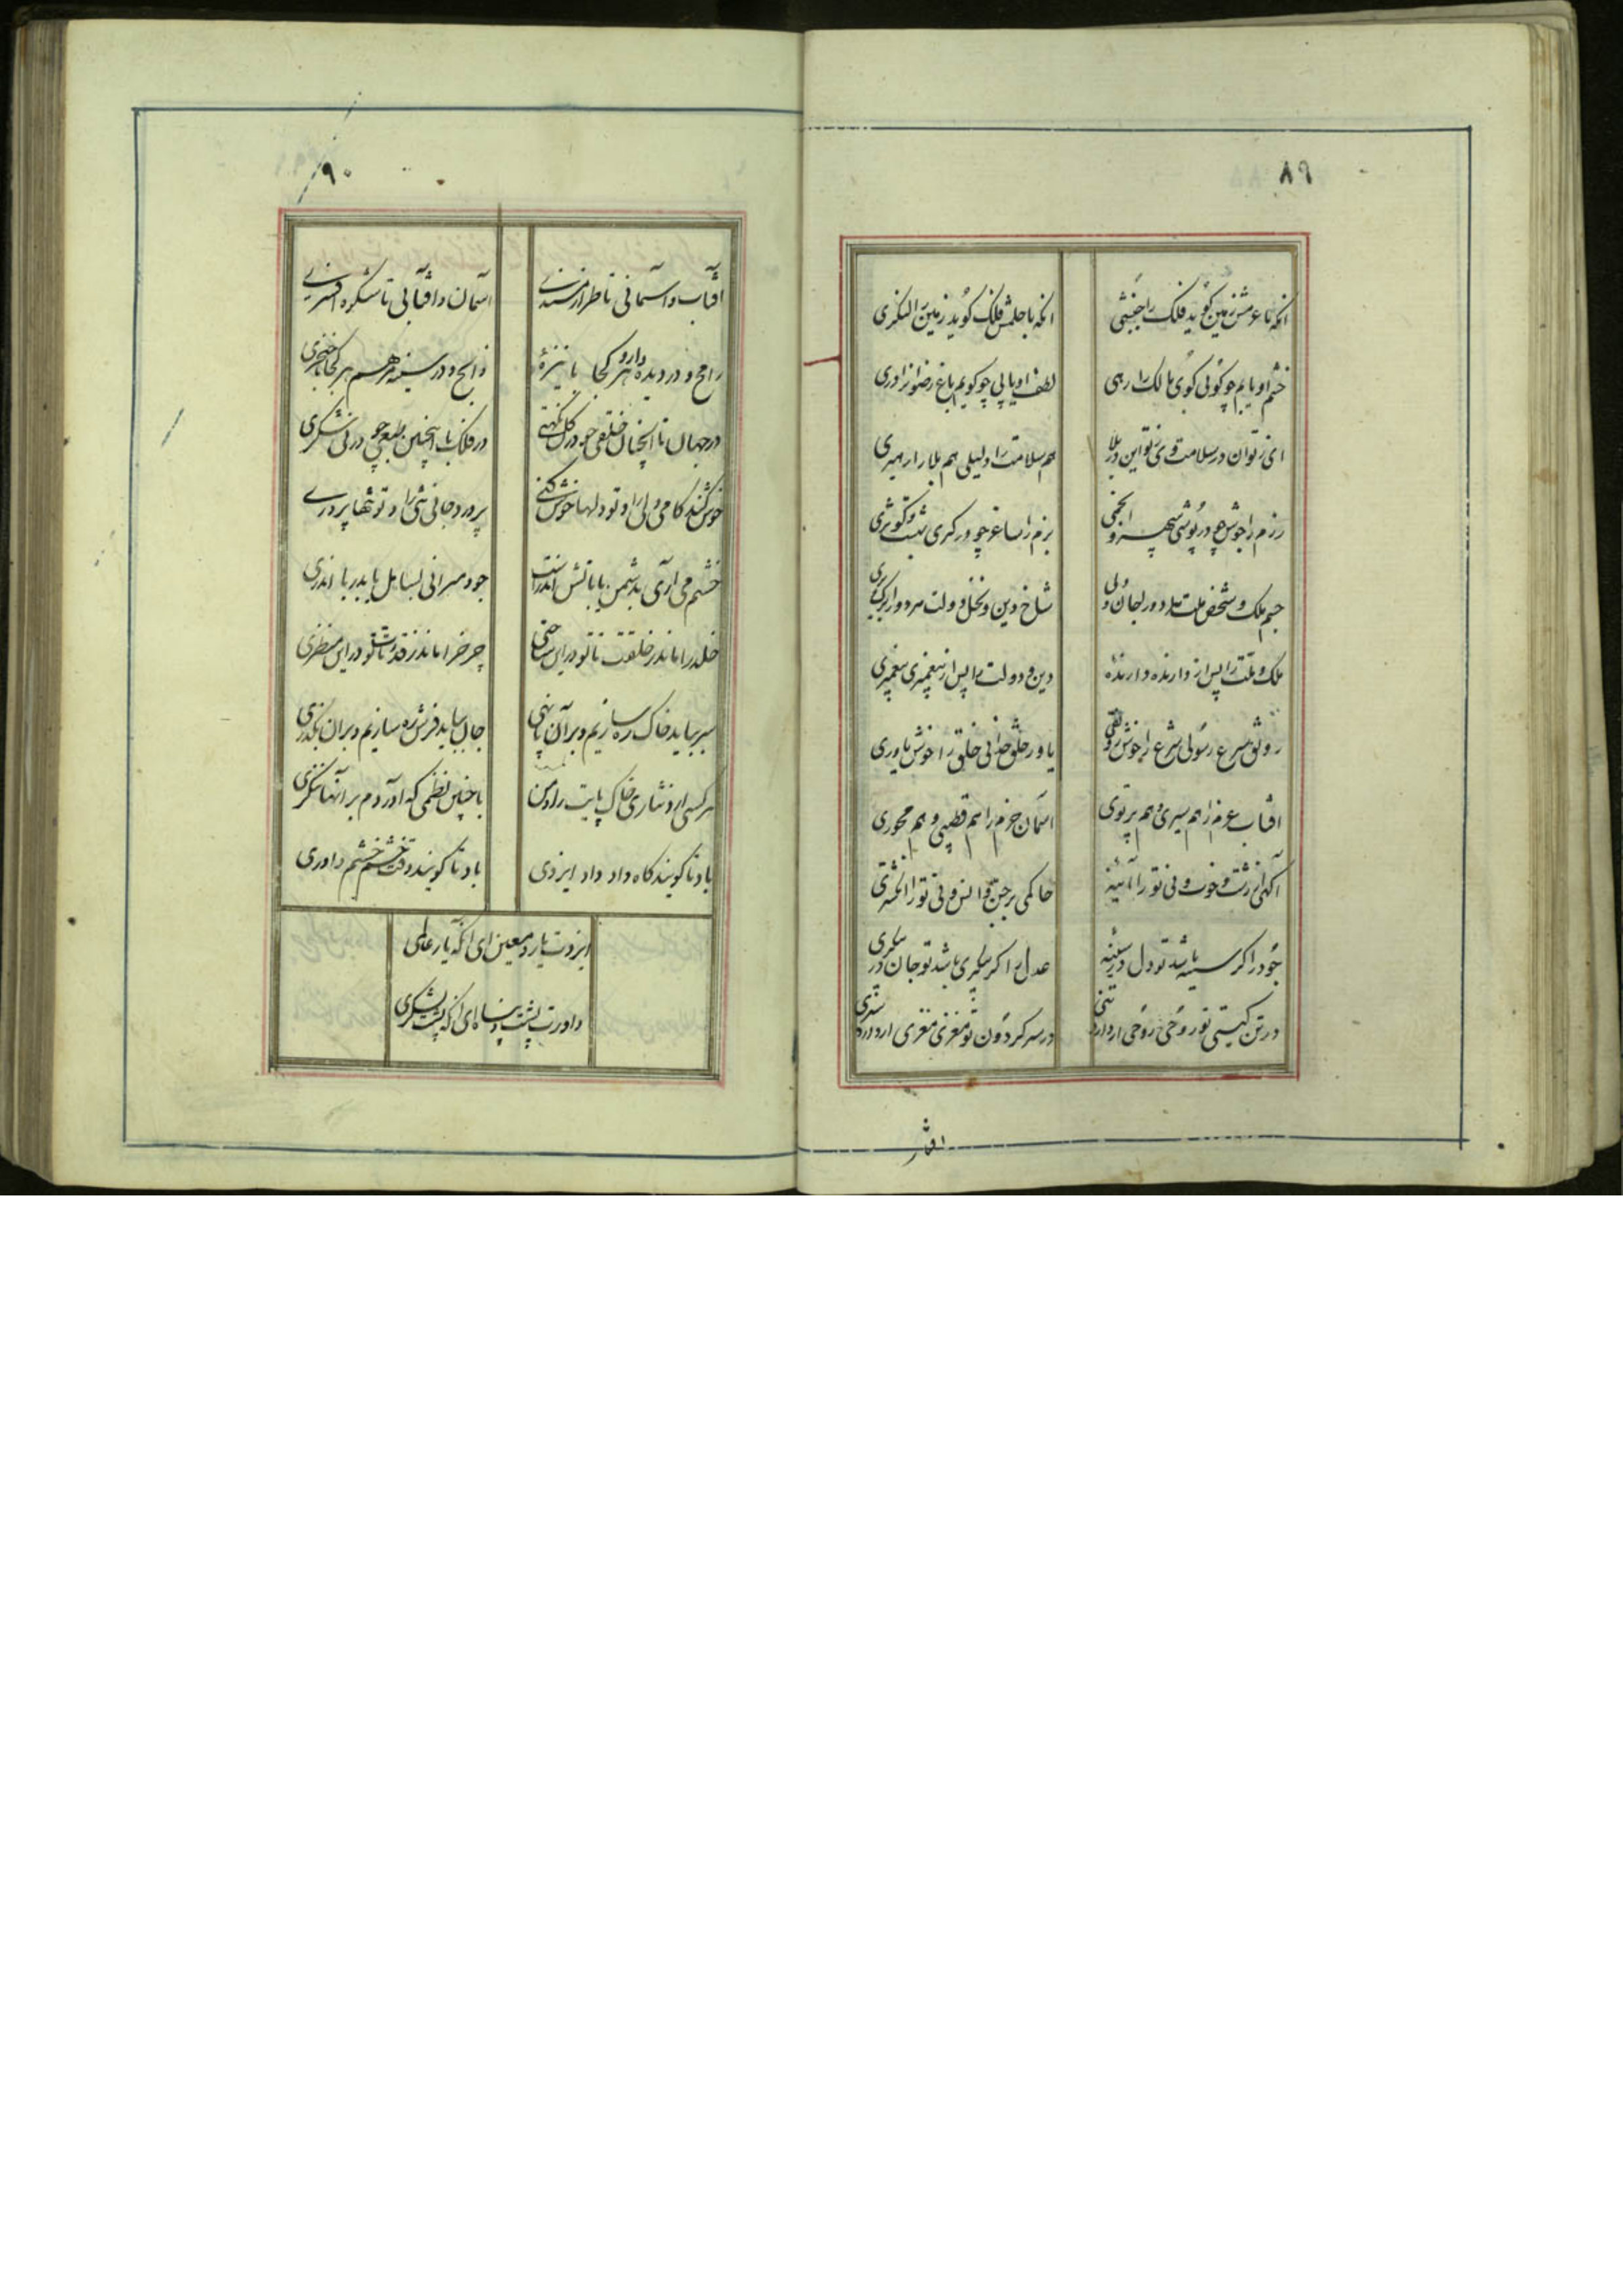 ٨٩
انکه با عزمش زمین کوید فلک را جنبشی
انکه با حلمش فلک کوید زمین را لنکری
خشم او یابم چو کوئی کوی مالک را رهی
لطف او یابی چو کویم باغ رضوانرا دری
هم سلامت را دلیلی هم بلا را رهبری
رزم را جوشی چو در پوشی سپهر و انجمی
بزم را ساغر چو در کیری بهشت و کوثری
جسم ملک و شخص ملت را دور از جان و دلی
شاخ دین و نخل دولت
ملک و ملت را پس از دارنده دارندهٔ
دین و دولت را پس از پیغمبری پیغمبری
رونق شرع رسولی شرع را خوش رونقی
یاور خلق خدائی خلق را خوش یاوری
افتاب عزم را هم سیری و هم پرتوی
اسمان حزم را هم قطبی و هم محوری
آکهی از زشت و خوب و نی تو را آئینه
حاکمی بر جن و انس و نی تو را انکشتری
جود را کر سینه باشد تو دل در سینهٔ
عدل را کر پیکری باشد تو جان در پیکری
در تن کیتی تو روحی روحی ار دارد تنی
در سر کردون تو مغزی مغزی ار دارد سری
افتا
٩٠
افتاب و آسمانی تا طراز مسندی
آسمان و افتابی تا شکوه افسری
رامح و در دیده دارد هر کجا با نیزهٔ
ذابح و در سینه هم هر کجا با خنجری
در جهان با انچنان خلقی چو در کل نکهتی
در فلک با اینچنین طبعی چو در نی شکری
خوش کند کامی ولی را و تو دلها خوش کنی
پرورد جانی نئی را و تو تنها پروری
خشم می اری بدشمن یا باتش اندرست
جود میرانی بسایل یا بدریا اندری
خلد را ماند ز خلقت تا تو در این ساحتی
چرخ را ماند ز قدرت تا تو در این منظری
سر بباید خاک ره سازیم و بر آن پا نهی
جان بباید فرش ره سازیم و بر ان بکذری
هر کسی ارد نثاری خاک پایت را و من
با چنین نظمی که اوردم بر آنها ننکری
باد تا کویند کاه داد داد ایزدی
باد تا کویند وقت خشم خشم داوری
ایزدت یار و معین ای انکه یار عالمی
داورت پشت و پناه ای انکه پشت لشکری